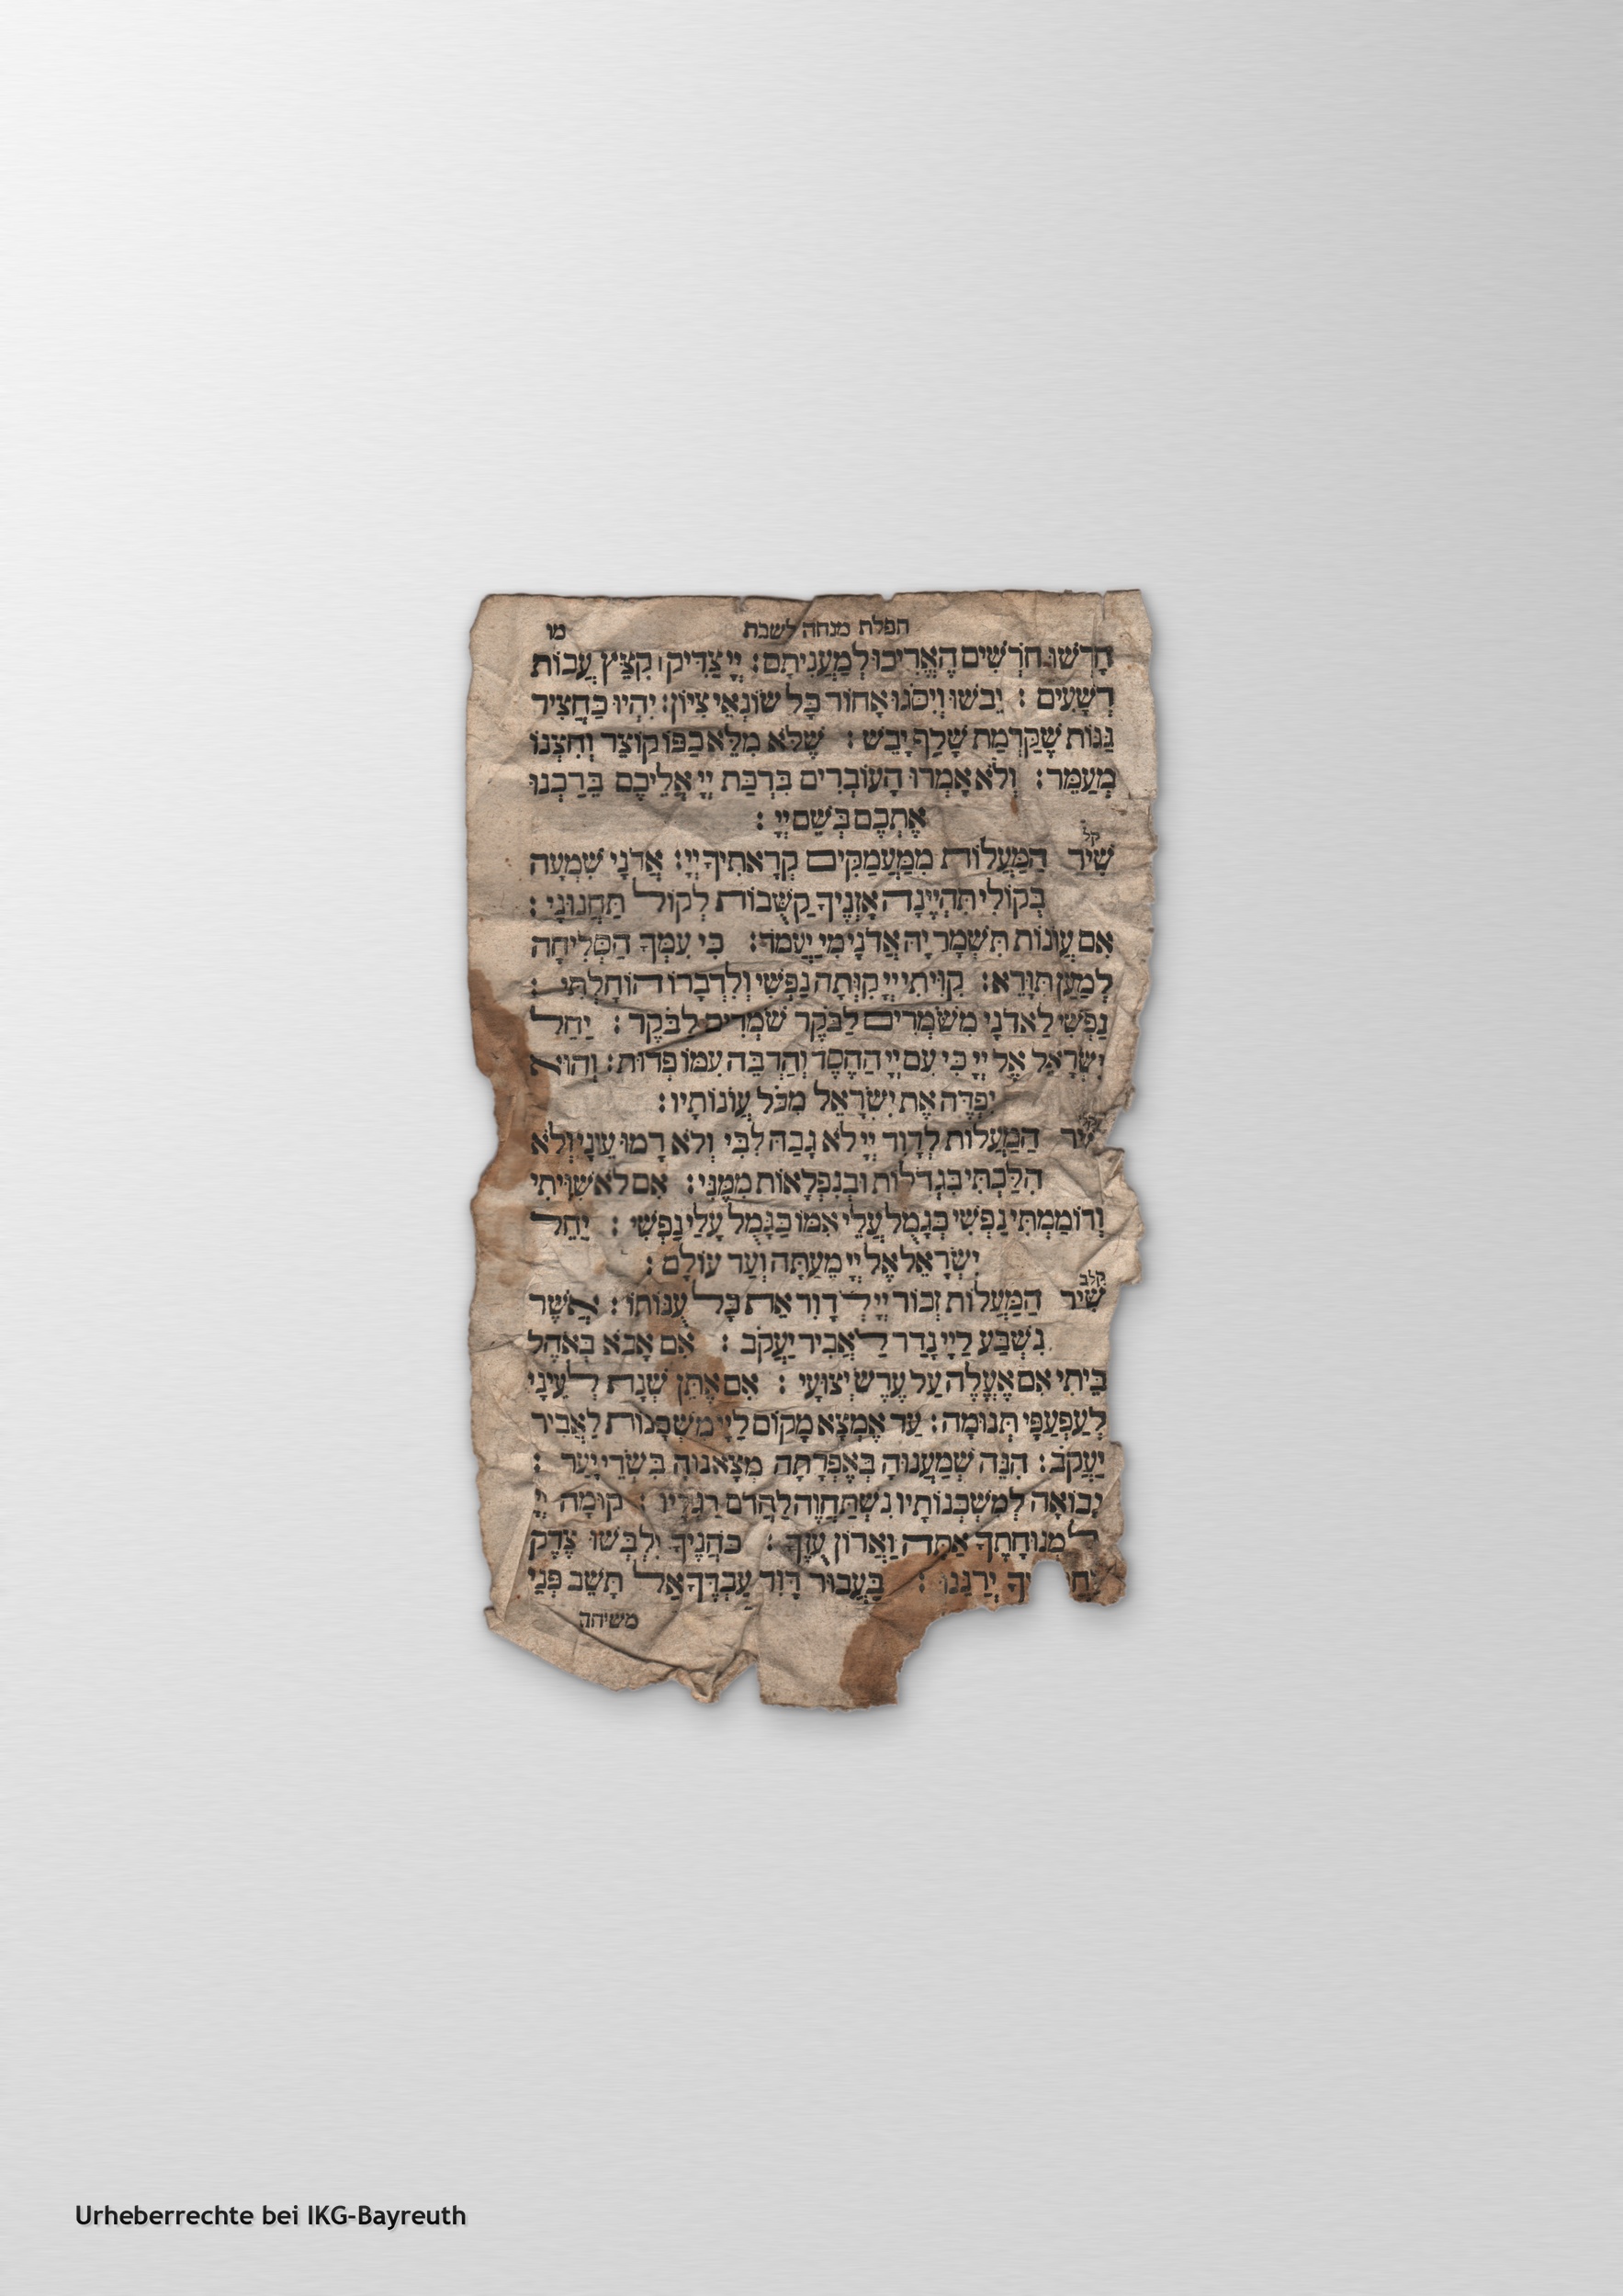 תפלת מנחה לשבת מו
חָרְשׁוּ חֹרְשִׁים הֶאֱרִיכוּ לְמַעֲנִיתָם : יְיָ צַדִּיק קִצֵּץ עֲבוֹת
רְשָׁעִים : יֵבֹשׁוּ וְיִסֹּגוּ אָחוֹר כָּל שׂוֹנְאֵי צִיּוֹן : יִהְיוּ כַּחֲצִיר
גַּגּוֹת שֶׁקַּדְמַת שָׁלַף יָבֵשׁ : שֶׁלֹּא מִלֵּא כַפּוֹ קוֹצֵר וְחִצְנוֹ
מְעַמֵּר : וְלֹא אָמְרוּ הָעוֹבְרִים בִּרְכַּת יְיָ אֲלֵיכֶם בֵּרַכְנוּ
אֶתְכֶם בְּשֵׁם יְיָ :
קל
שִׁיר הַמַּעֲלוֹת מִמַּעֲמַקִּים קְרָאתִיךָ יְיָ : אֲדֹנָי שִׁמְעָה
בְקוֹלִי תִּהְיֶינָה אָזְנֶיךָ קַשֻּׁבוֹת לְקוֹל תַּחֲנוּנָי :
אִם עֲוֹנוֹת תִּשְׁמָר יָהּ אֲדֹנָי מִי יַעֲמֹד : כִּי עִמְּךָ הַסְּלִיחָה
לְמַעַן תִּוָּרֵא : קִוִּיתִי יְיָ קִוְּתָה נַפְשִׁי וְלִדְבָרוֹ הוֹחָלְתִּי :
נַפְשִׁי לַאדֹנָי מִשֹּׁמְרִים לַבֹּקֶר שֹׁמְרִים לַבֹּקֶר : יַחֵל
יִשְׂרָאֵל אֶל יְיָ כִּי עִם יְיָ הַחֶסֶד וְהַרְבֵּה עִמּוֹ פְדוּת : וְהוּא
יִפְדֶּה אֶת יִשְׂרָאֵל מִכֹּל עֲוֹנוֹתָיו :
שִׁיר הַמַּעֲלוֹת לְדָוִד יְיָ לֹא גָבַהּ לִבִּי וְלֹא רָמוּ עֵינַי וְלֹא
הִלַּכְתִּי בִּגְדֹלוֹת וּבְנִפְלָאוֹת מִמֶּנִּי : אִם לֹא שִׁוִּיתִי
וְדוֹמַמְתִּי נַפְשִׁי כְּגָמֻל עֲלֵי אִמּוֹ כַּגָּמֻל עָלַי נַפְשִׁי : יַחֵל
יִשְׂרָאֵל אֶל יְיָ מֵעַתָּה וְעַד עוֹלָם :
קלב
שִׁיר הַמַּעֲלוֹת זְכוֹר יְיָ לְדָוִד אֵת כָּל עֻנּוֹתוֹ : אֲשֶׁר
נִשְׁבַּע לַיְיָ נָדַר לַאֲבִיר יַעֲקֹב : אִם אָבֹא בְּאֹהֶל
בֵּיתִי אִם אֶעֱלֶה עַל עֶרֶשׂ יְצוּעָי : אִם אֶתֵּן שְׁנָת לְעֵינָי
לְעַפְעַפַּי תְּנוּמָה : עַד אֶמְצָא מָקוֹם לַיְיָ מִשְׁכָּנוֹת לַאֲבִיר
יַעֲקֹב : הִנֵּה שְׁמַעֲנוּהָ בְאֶפְרָתָה מְצָאנוּהָ בִּשְׂדֵי יָעַר :
נָבוֹאָה לְמִשְׁכְּנוֹתָיו נִשְׁתַּחֲוֶה לַהֲדֹם רַגְלָיו : קוּמָה יְיָ
לִמְנוּחָתֶךָ אַתָּה וַאֲרוֹן עֻזֶּךָ : כֹּהֲנֶיךָ יִלְבְּשׁוּ צֶדֶק
יְרַנֵּנוּ : בַּעֲבוּר דָּוִד עַבְדֶּךָ אַל תָּשֵׁב פְּנֵי
משיחך
Urheberrechte bei IKG-Bayreuth